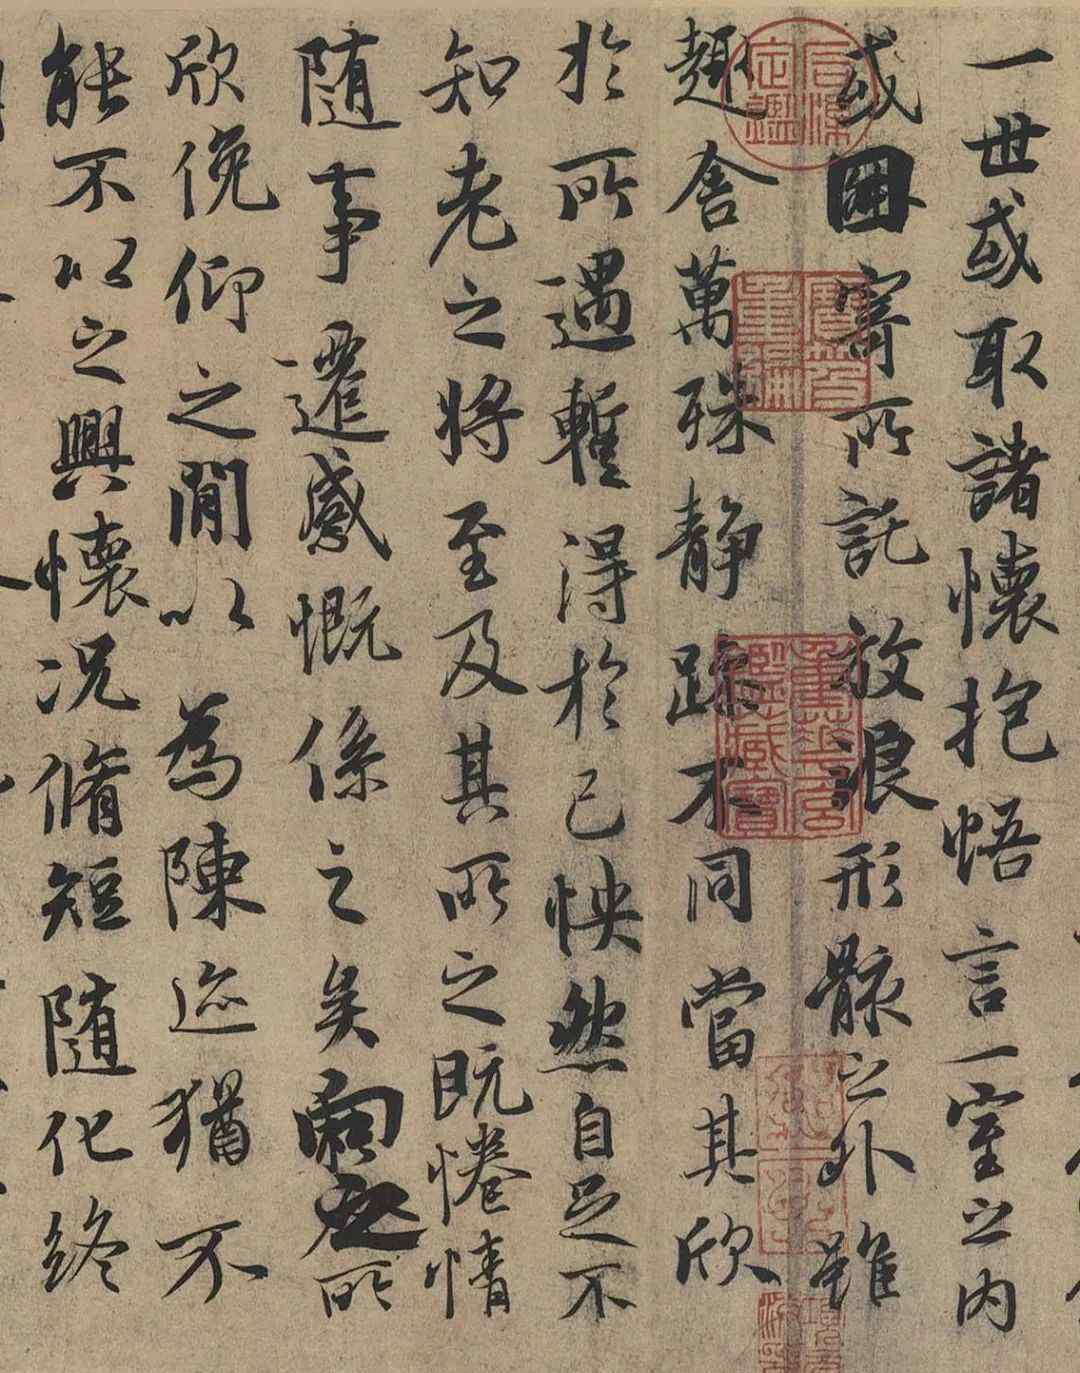 一世或取諸懷抱悟言一室之内
或因寄所託放浪形骸之外雖
趣舍萬殊静躁不同當其欣
於所遇暫得於己怏然自足不
知老之將至及其所之既惓情
随事遷感慨係之矣向之所
欣俛仰之閒以為陳迹猶不
能不以之興懷况脩短随化終
石渠定鑑
寶笈重編
重華宫鑑藏寶